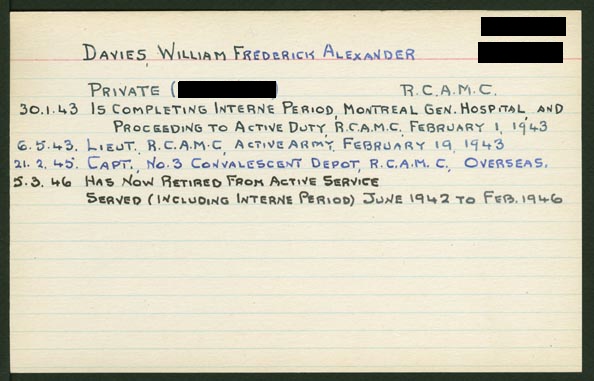 DAVIES, WILLIAM FREDERICK ALEXANDER
PRIVATE ( ) R.C.A.M.C.
30.1.43 IS COMPLETING INTERNE PERIOD, MONTREAL GEN. HOSPITAL, AND
PROCEEDING TO ACTIVE DUTY, R.C.A.M.C. FEBRUARY 1, 1943
6.5.43. LIEUT., R.C.A.M.C., ACTIVE ARMY, FEBRUARY 19, 1943
21.2.45. CAPT., NO.3 CONVALESCENT DEPOT, R.C.A.M.C., OVERSEAS.
5.3.46 HAS NOW RETIRED FROM ACTIVE SERVICE
SERVED (INCLUDING INTERNE PERIOD) JUNE 1942 TO FEB. 1946